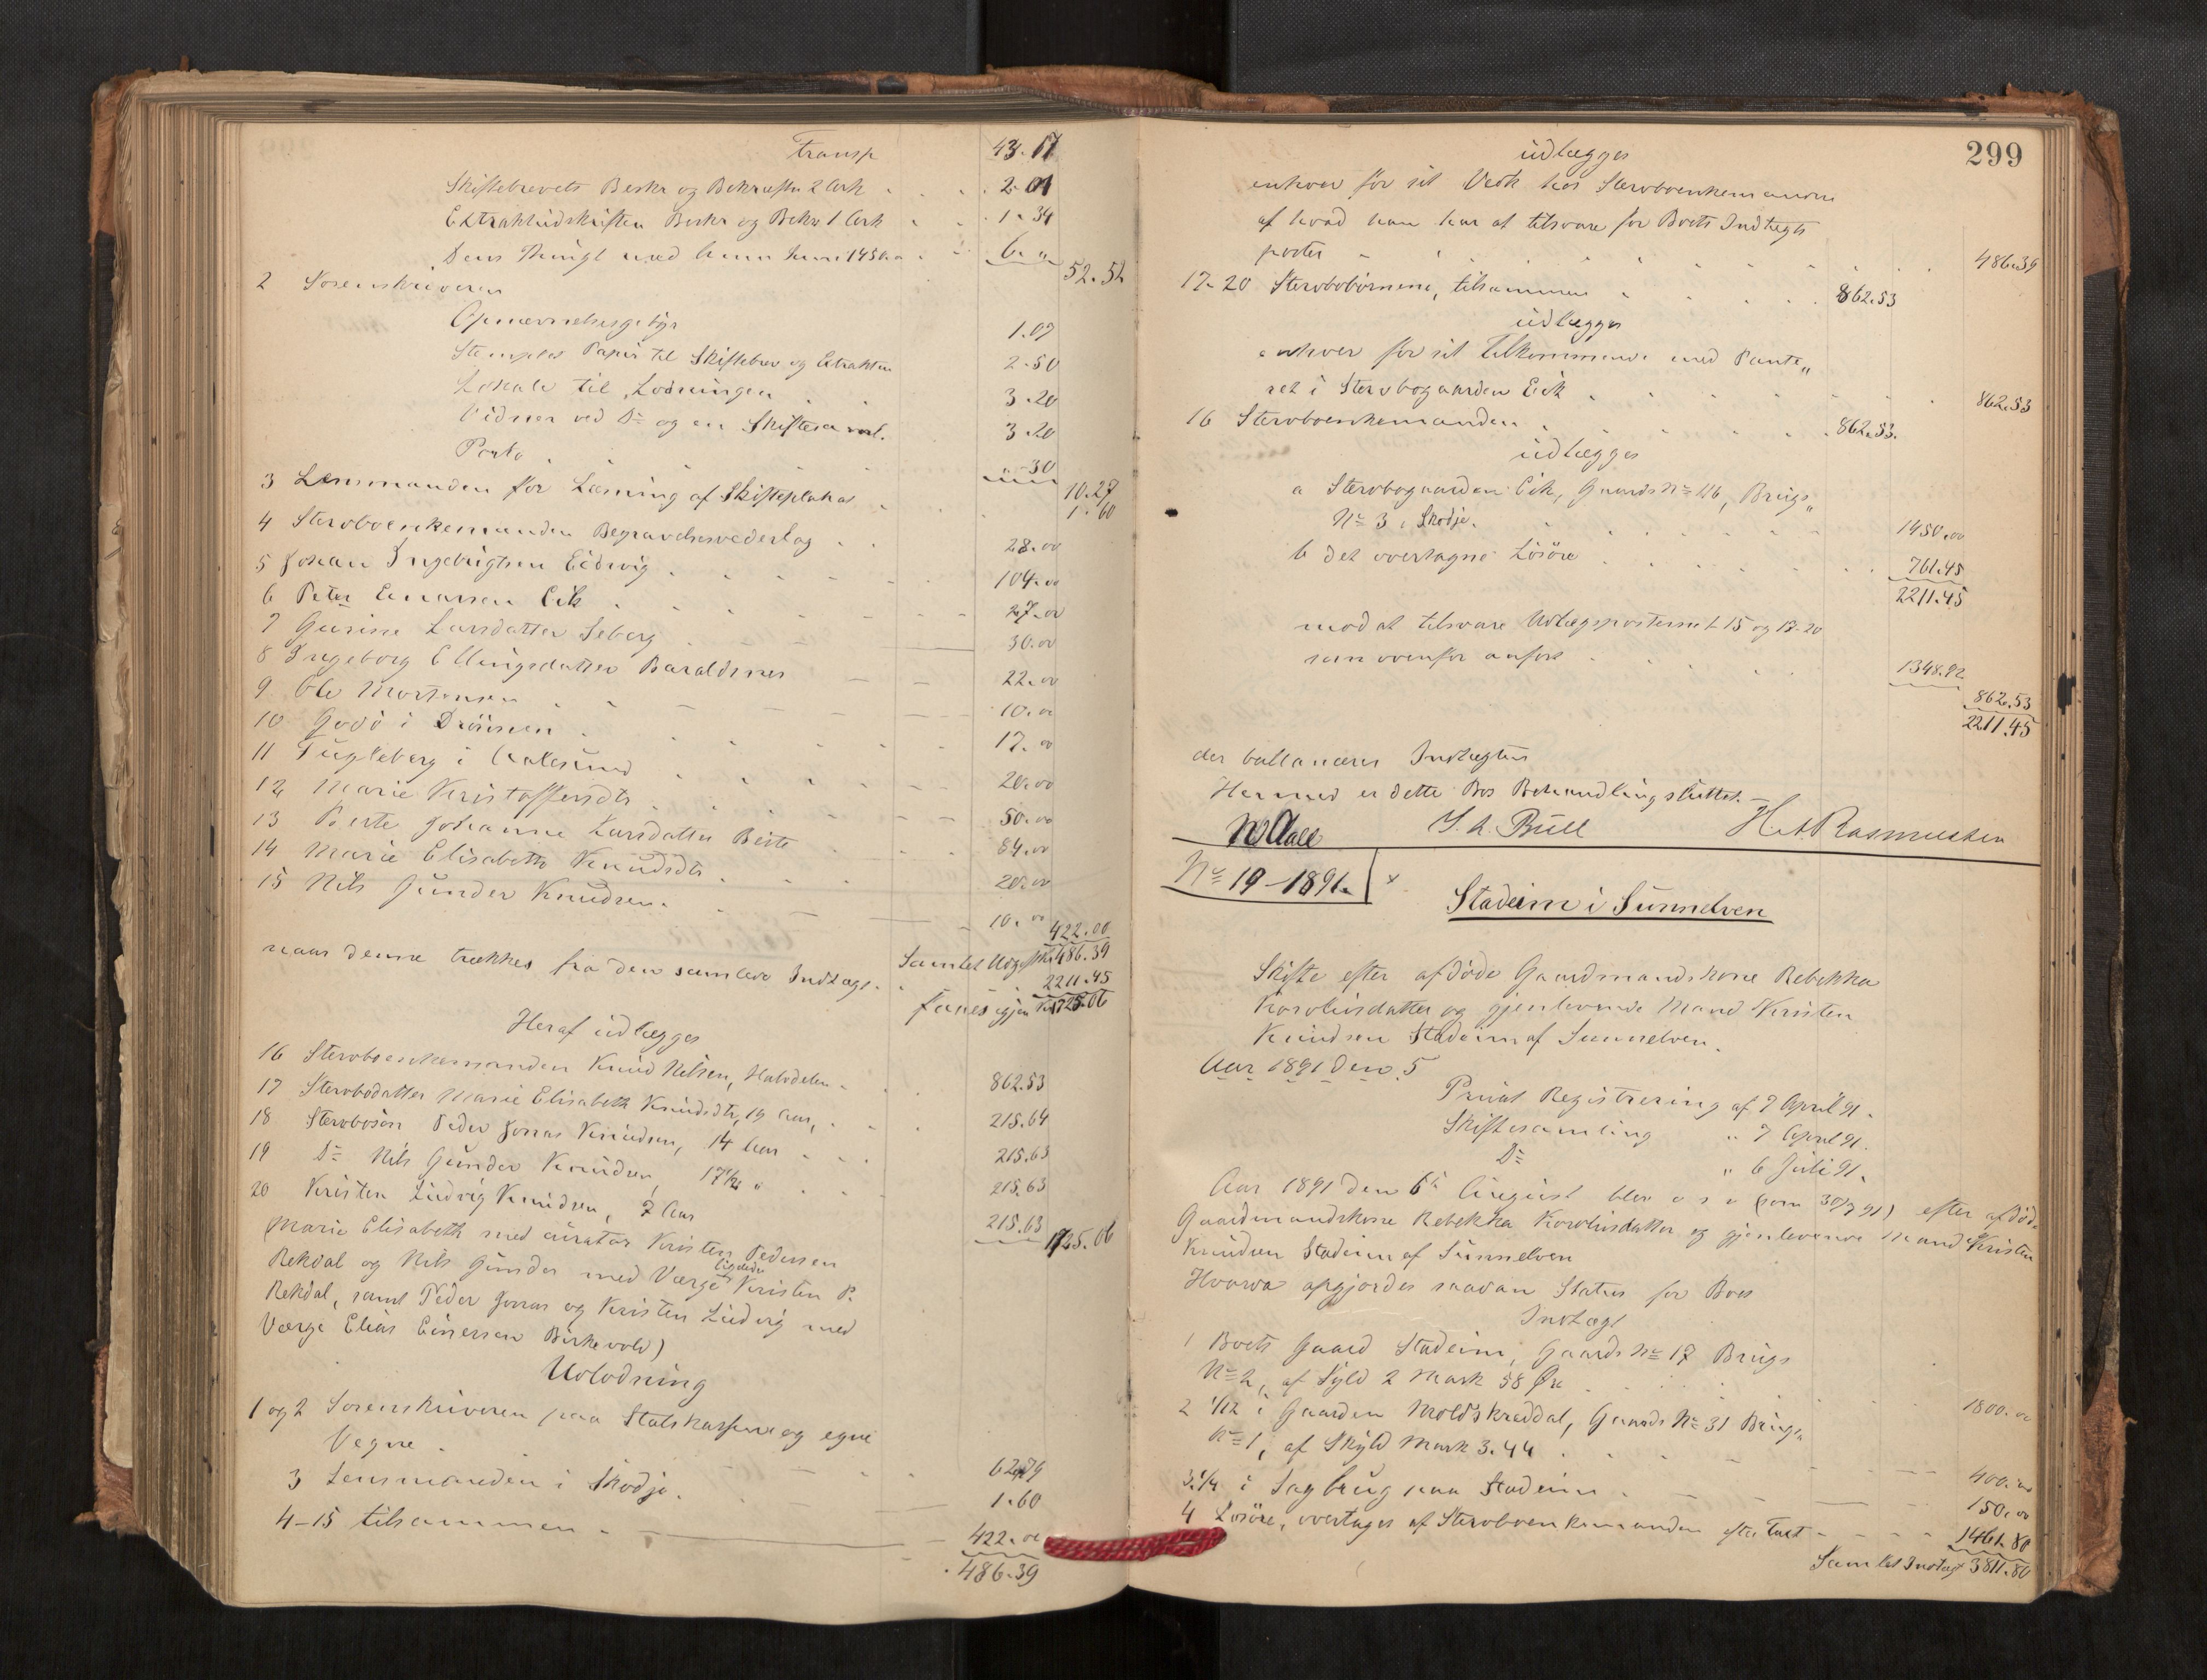 Transp 43.17
Skiftebrevets Beskr og Bekræftn 2 Ark 2.01
Extraktudskriften Beskr og Bekr 1 Ark 1.34
6. "
52.52
2 Sorenskriveren
Opnævnelsesgebyr 1.07
Stemplet Papir til Skiftebrev og Extrakten 2.50
Lokale til Lodningen 3.20
Vidner ved Do og en Skiftesaml. 3.20
Porto " 30
10.27
3 Lensmanden for Læsning af Skifteplakat 1.60
4 Stervboenkemanden Begravelsesvederlag 28.00
5 Johan Ingebrigtsen Eidsvig 104.00
6 Peter Einarsen Eik 27.00
7 Gurine Larsdatter Seberg 30.00
8 Ingeborg Ellingsdatter Baraldsnes 22.00
9 Ole Mortensen 10.00
10 Godø i Drønen 17.00
11 Fugleberg i Aalesund 20.00
12 Marie Kristoffersdtr 50.00
13 Berte Johanne Larsdatter Beite 84.00
14 Marie Elisabeth Knudsdtr 20.00
15 Nils Gunder Knudsen. 10.00
422.00
Samlet Udgift Kr 486.39
naar denne trækkes fra den samlede Indtægt. 2211.45
faaes igjen Kr 1725.06
Heraf udlægges
16 Stervboenkemanden Knud Nilsen, Halvdelen 862.53
17 Stervbodatter Marie Elisabeth Knudsdtr, 19 Aar, 215.64
18 Stervbosøn Peder Jonas Knudsen, 14 Aar 215.63
19 Do Nils Gunder Knudsen, 17 1/2 " 215.63
20 Kristen Ludvig Knudsen, 7 Aar 215.63
1725.06
(Marie Elisabeth med curator Kristen Pedersen
Rekdal og Nils Gunder med Værge ligeledes Kristen P.
Rekdal, samt Peder Jonas og Kristen Ludvig med
Værge Elias Einersen Birkevold)
Udlodning
1 og 2 Sorenskriveren paa Statskassens og egne
Vegne. 62.79
3 Lensmanden i Skodje. 1.60
4-15 tilsammen 422.00
486.39
299
udlægges
enhver for sit Vedk hos Stervboenkemanden
af hvad han har at tilsvare for Boets Indtægts
poster 486.39
17-20 Stervbobørnene, tilsammen 862.53
udlægges
enhver for sit Tilkommende med Pante„
ret i Stervbogaarden Eik 862.53
16 Stervboenkemanden 862.53.
udlægges
a Stervbogaarden Eik, Gaards No 116, Brugs„
No 3 i Skodje. 1450.00
b det overtagne Løsøre 761.45
2211.45
mod at tilsvare Udlægsposterne 1-15 og 17-20
som ovenfor anført 1348.92
862.53
2211.45
der ballancerer Indtægten
Hermed er dette Bos Behandling sluttet.
N Aall S. A. Bull H. A. Rasmussen
No 19-1891.
Stadeim i Sunnelven
Skifte efter afdøde Gaardmandskone Rebekka
Karolusdatter og gjenlevende Mand Kristen
Knudsen Stadeim af Sunnelven.
Aar 1891 den 5
Privat Registrering af 7 April 91.
Skiftesamling " 7 April 91.
Do " 6 Juli 91.
Aar 1891 den 6te August blev o s v (som 30/7 91) efter afdøde
Gaardmandskone Rebekka Karolusdatter og gjenlevende Mand Kristen
Knudsen Stadeim af Sunnelven
Hvorda opgjordes saadan Status for Boet
Indtægt
1 Boets Gaard Stadeim, Gaards No 17 Brugs
No 2, af Skyld 2 Mark 58 Øre 1800.00
2 1/12 i Gaarden Moldskreddal, Gaards No 31 Brugs„
No 1, af Skyld Mark 3.44 400.00
3. 1/4 i Sagbrug paa Stadeim 150.00
4 Løsøre, overtages af Stervboenkemanden efter Taxt 1461.80
Samlet Indtægt 3811.80